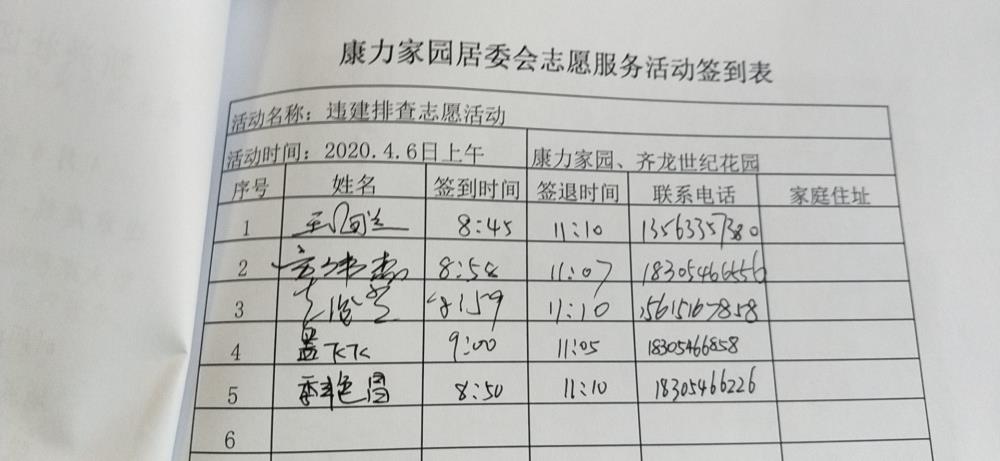 康力家园居委会志愿服务活动签到表
活动名称：违建排查志愿活动
活动时间：2020.4.6日上午 康力家园、齐龙世纪花园
序号 姓名 签到时间 签退时间 联系电话 家庭住址
1 8:45 11:10 13563357380
2 8:58 11:07 18305466556
3 8:59 11:10 15615167858
4 盖飞飞 9:00 11:05 18305466858
5 季艳图 8:50 11:10 18305466226
6